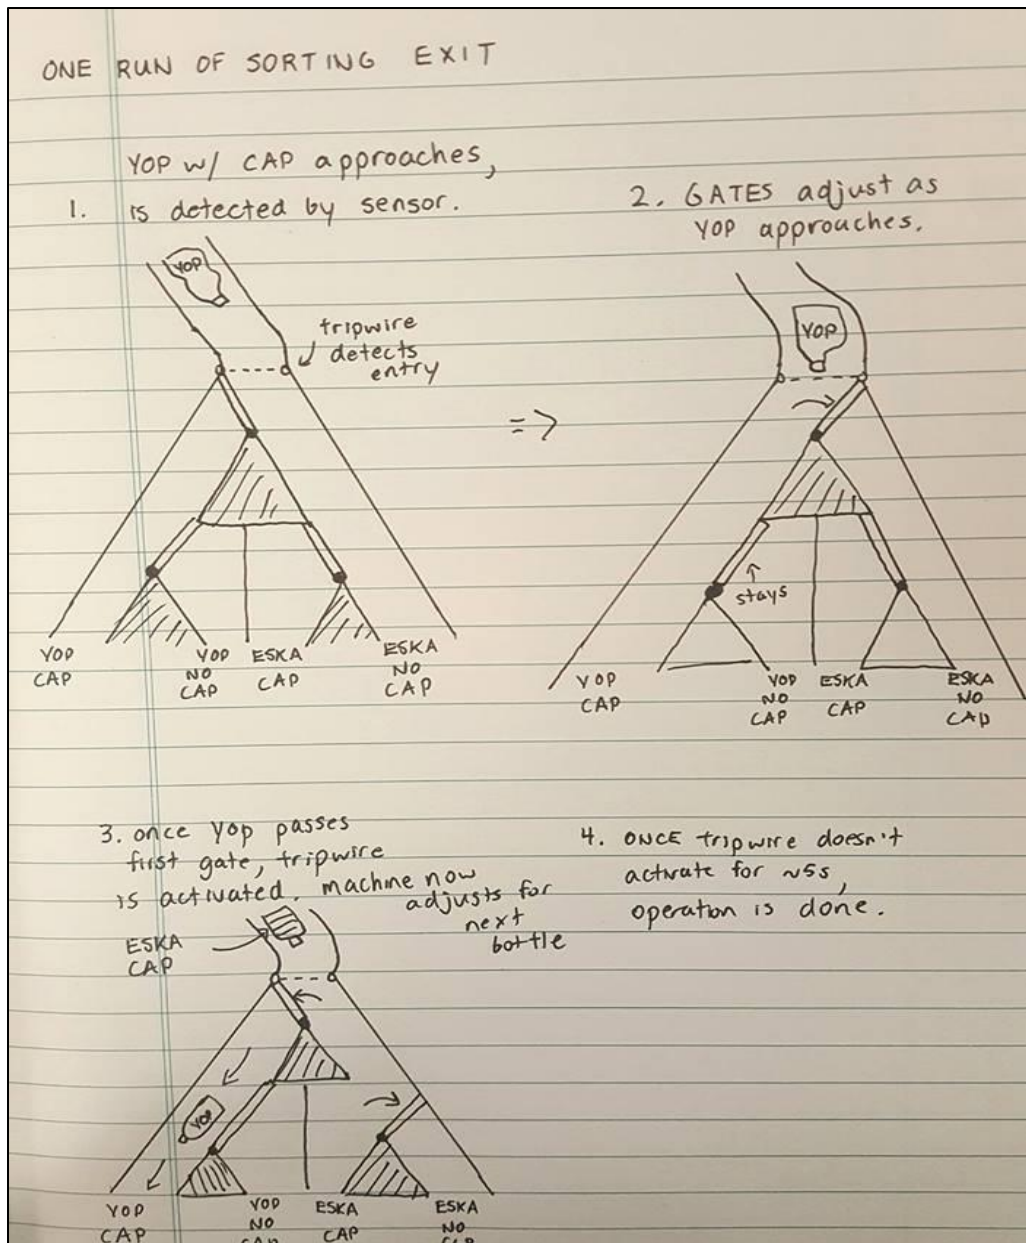 ONE RUN OF SORTING EXIT
YOP w/ CAP approaches,
1. is detected by sensor.
YOP
tripwire
detects
entry
YOP
CAP
YOP
NO
CAP
ESKA
CAP
ESKA
NO
CAP
=>
2. GATES adjust as
YOP approaches.
YOP
stays
YOP
CAP
YOP
NO
CAP
ESKA
CAP
ESKA
NO
CAP
3. once YOP passes
first gate, tripwire
is activated. machine now
adjusts for
next
bottle
ESKA
CAP
YOP
YOP
CAP
YOP
NO
CAP
ESKA
CAP
ESKA
NO
CAP
4. ONCE tripwire doesn't
activate for ~5s,
operation is done.